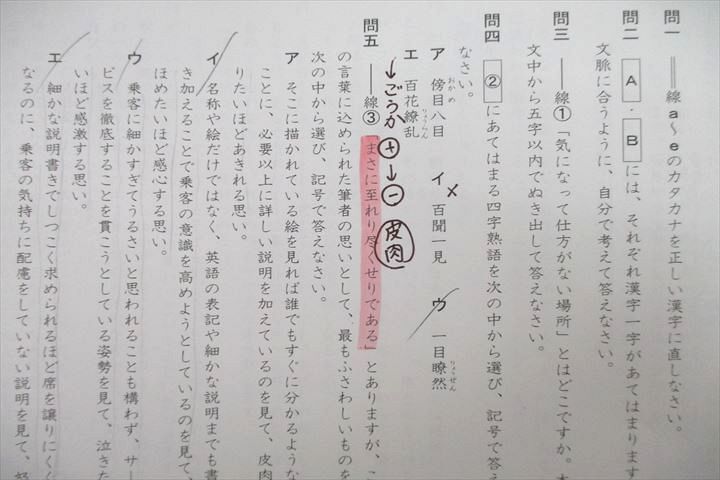 問一 ――線a〜eのカタカナを正しい漢字に直しなさい。
問二 A・Bには、それぞれ漢字一字があてはまります
文脈に合うように、自分で考えて答えなさい。
問三 ――線①「気になって仕方がない場所」とはどこですか。本
文中から五字以内でぬき出して答えなさい。
問四 ②にあてはまる四字熟語を次の中から選び、記号で答え
なさい。
ア 傍目八目 イ 百聞一見 ウ 一目瞭然
おかめ
りょうぜん
エ 百花繚乱
りょうらん
↓ごうか ＋→－ 皮肉
問五 ――線③「まさに至れり尽くせりである」とありますが、こ
の言葉に込められた筆者の思いとして、最もふさわしいものを
次の中から選び、記号で答えなさい。
ア そこに描かれている絵を見れば誰でもすぐに分かるような
ことに、必要以上に詳しい説明を加えているのを見て、皮肉
りたいほどあきれる思い。
イ 名称や絵だけではなく、英語の表記や細かな説明までも書
き加えることで乗客の意識を高めようとしているのを見て、
ほめたいほど感心する思い。
ウ 乗客に細かすぎてうるさいと思われることも構わず、サー
ビスを徹底することを貫こうとしている姿勢を見て、泣きた
いほど感激する思い。
エ 細かな説明書きでしつこく求められるほど席を譲りにくく
なるのに、乗客の気持ちに配慮をしていない説明を見て、怒